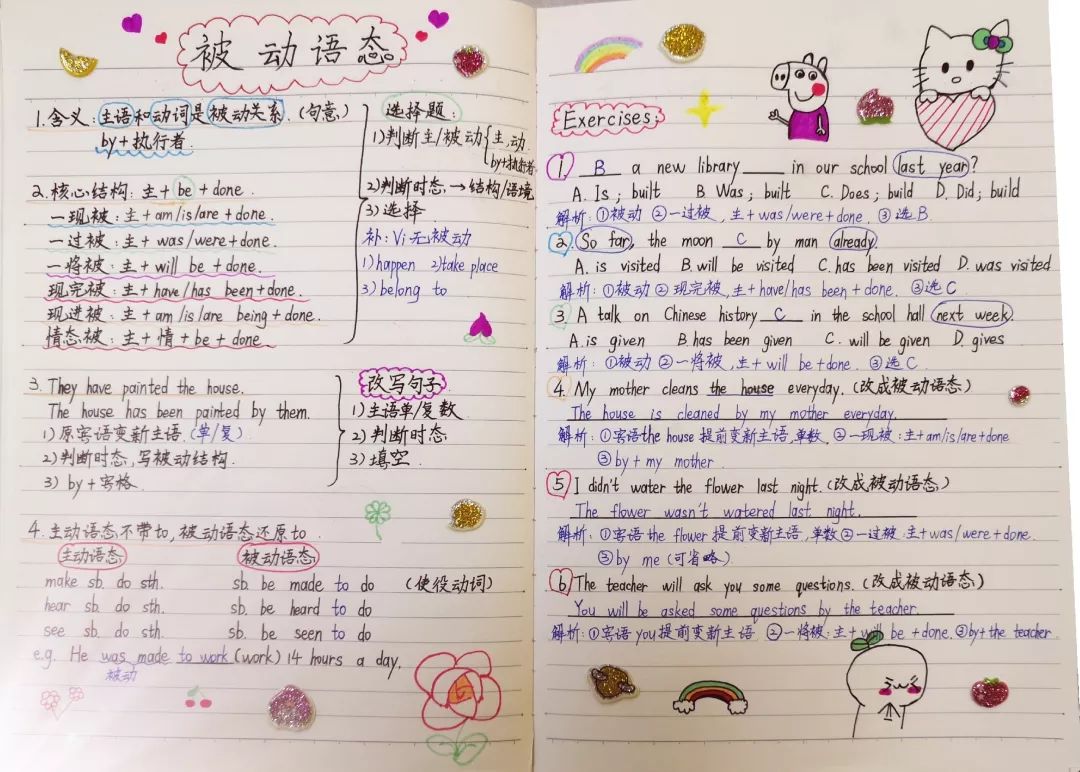 被动语态
1.含义：主语和动词是被动关系.(句意)
by+执行者.
2.核心结构：主+be+done.
一现被：主+am/is/are+done.
一过被：主+was/were+done.
一将被：主+will be+done.
现完被：主+have/has been+done.
现进被：主+am/is/are being+done.
情态被：主+情+be+done
选择题：
1)判断主/被动{主,动
by+执行者
2)判断时态→结构/语境
3)选择
补：Vi无被动
1)happen 2)take place
3)belong to
3. They have painted the house.
The house has been painted by them.
1)原宾语变新主语.(单/复)
2)判断时态,写被动结构.
3) by+宾格.
改写句子
1)主语单/复数
2)判断时态
3)填空.
4.主动语态不带to,被动语态还原to.
主动语态 被动语态
make sb. do sth. sb. be made to do (使役动词)
hear sb. do sth. sb. be heard to do
see sb. do sth. sb. be seen to do
e.g. He was made to work(work) 14 hours a day.
被动
Exercises:
1. B a new library ____ in our school last year?
A. Is; built B. Was; built C. Does; build D. Did; build
解析：①被动 ②一过被，主+was/were+done. ③选B.
2. So far, the moon C by man already.
A. is visited B. will be visited C. has been visited D. was visited
解析：①被动 ②现完被,主+have/has been+done. ③选C
3. A talk on Chinese history C in the school hall next week.
A. is given B. has been given C. will be given D. gives
解析：①被动 ②一将被,主+will be+done. ③选C.
4. My mother cleans the house everyday.(改成被动语态)
The house is cleaned by my mother everyday.
解析：①宾语the house提前变新主语,单数.②一现被：主+am/is/are+done
③by+my mother.
5. I didn't water the flower last night.(改成被动语态)
The flower wasn't watered last night.
解析：①宾语the flower提前变新主语,单数②一过被：主+was/were+done.
③by me(可省略)
6. The teacher will ask you some questions.(改成被动语态)
You will be asked some questions by the teacher.
解析：①宾语you提前变新主语 ②一将被：主+will be+done.③by+the teacher